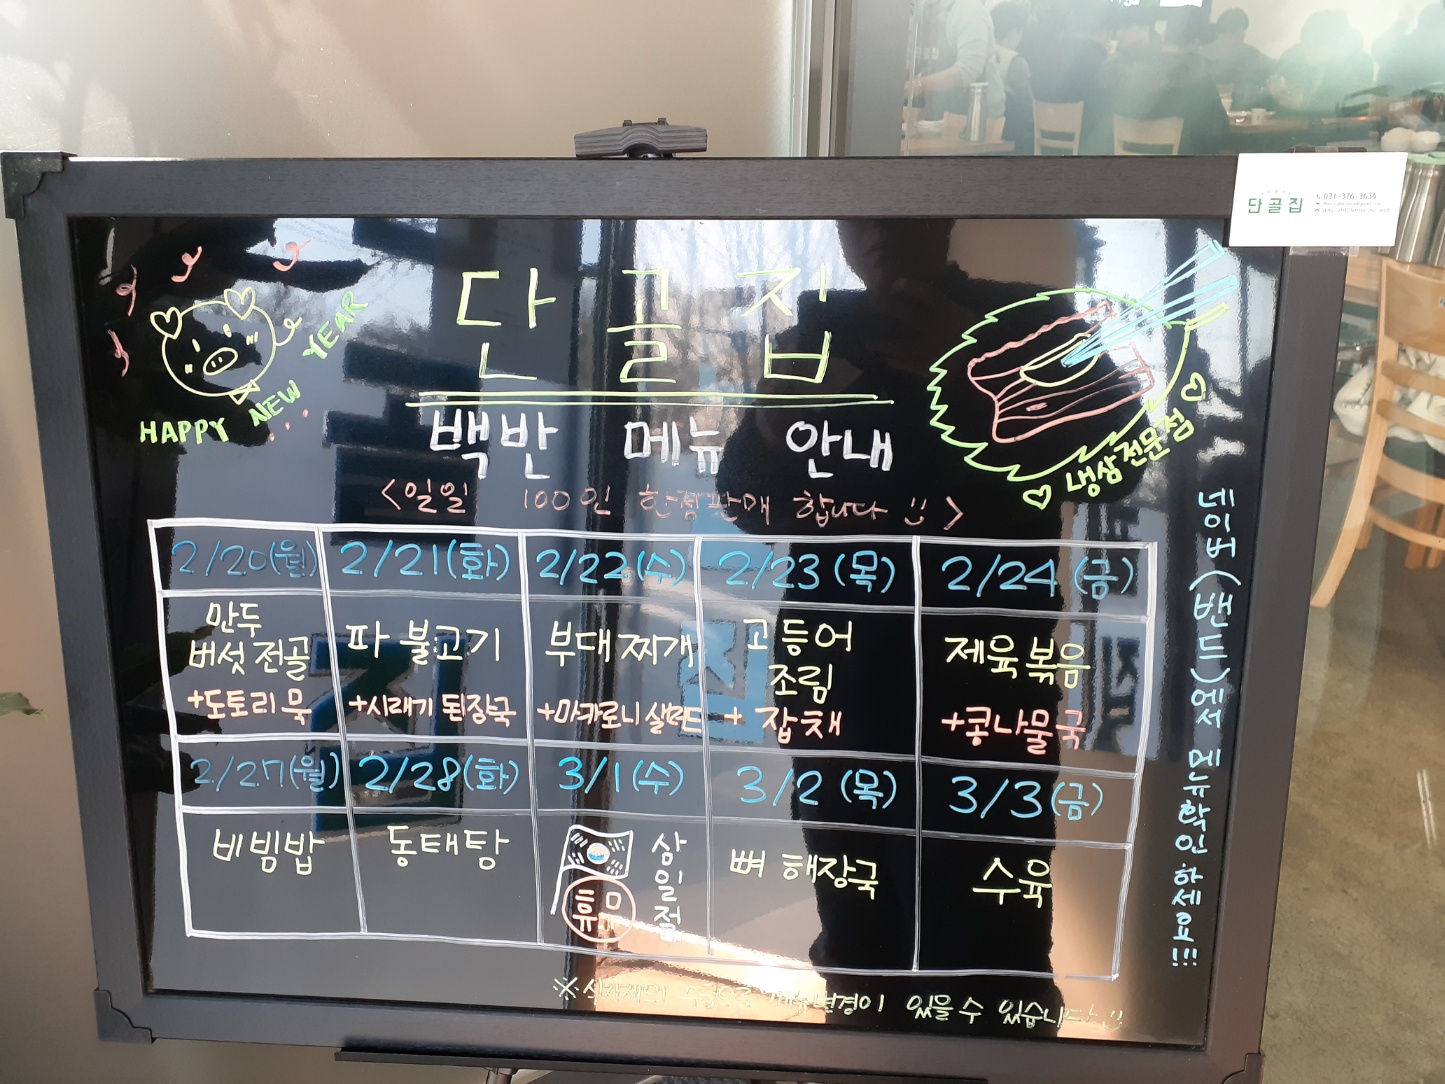 단골집
031-376-3634
HAPPY NEW YEAR
단골집
백반 메뉴 안내
<일일 100인 한정판매 합니다 !!>
냉삼전문점
네이버(밴드)에서 메뉴확인하세요!!!
2/20(월) 2/21(화) 2/22(수) 2/23(목) 2/24(금)
만두 버섯전골 +도토리묵
파 불고기 +시래기 된장국
부대찌개 +마카로니 샐러드
고등어 조림 + 잡채
제육볶음 +콩나물국
2/27(월) 2/28(화) 3/1(수) 3/2(목) 3/3(금)
비빔밥
동태탕
삼일절 휴무
뼈 해장국
수육
※식자재 수급으로 메뉴변경이 있을 수 있습니다